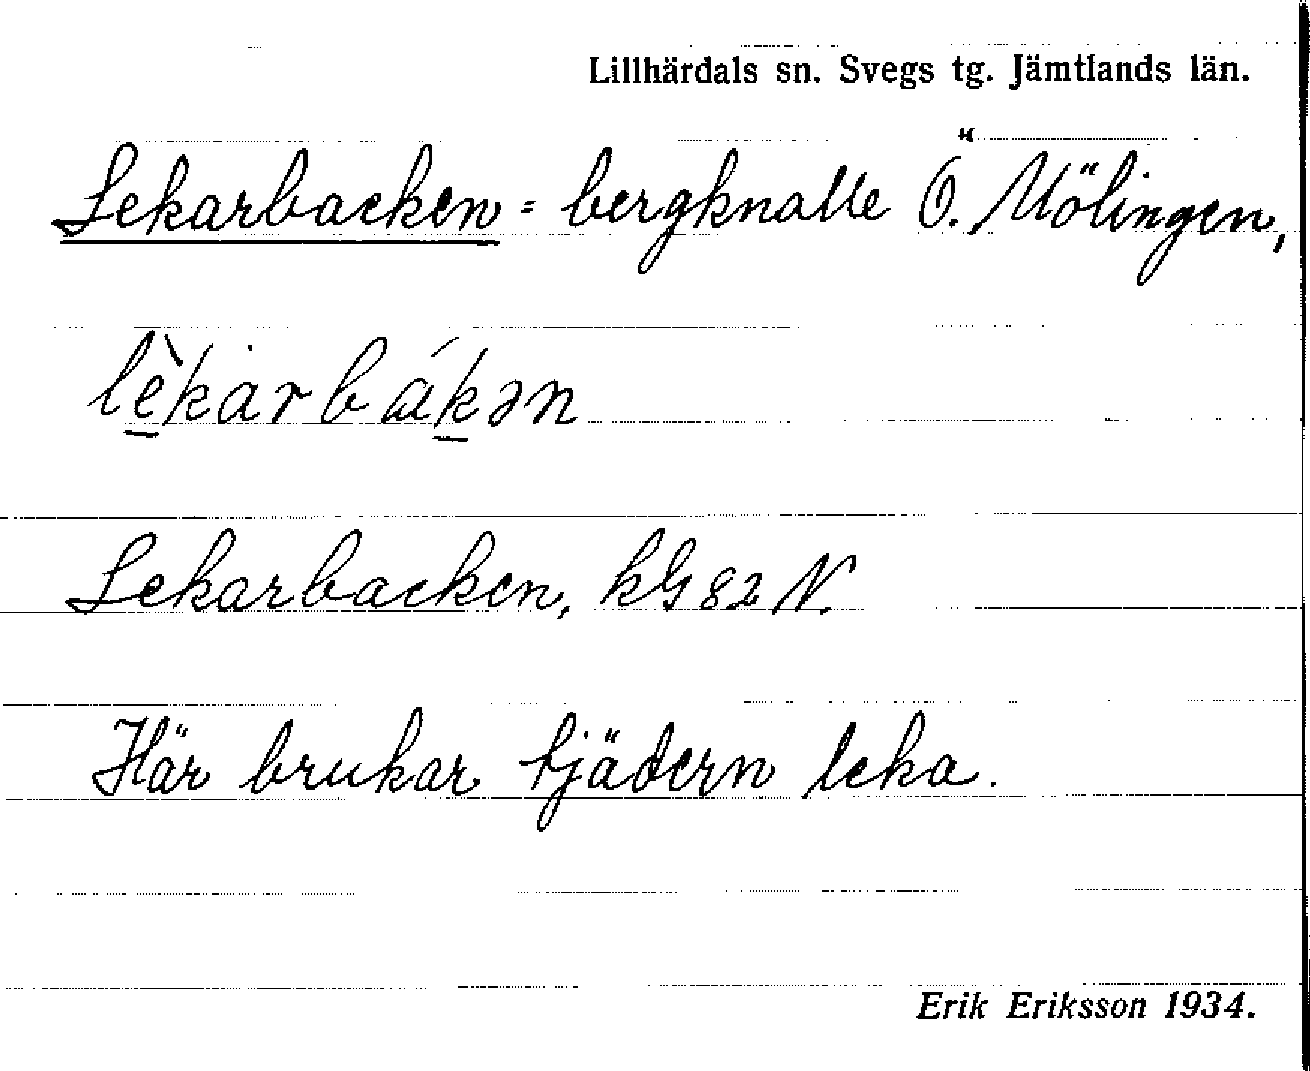 Lillhärdals sn. Svegs tg. Jämtlands län.
Lekarbacken = bergknalle Ö. Mölingen,
lèkar bákən
Lekarbacken, kG 82 N.
Här brukar tjädern leka.
Erik Eriksson 1934.